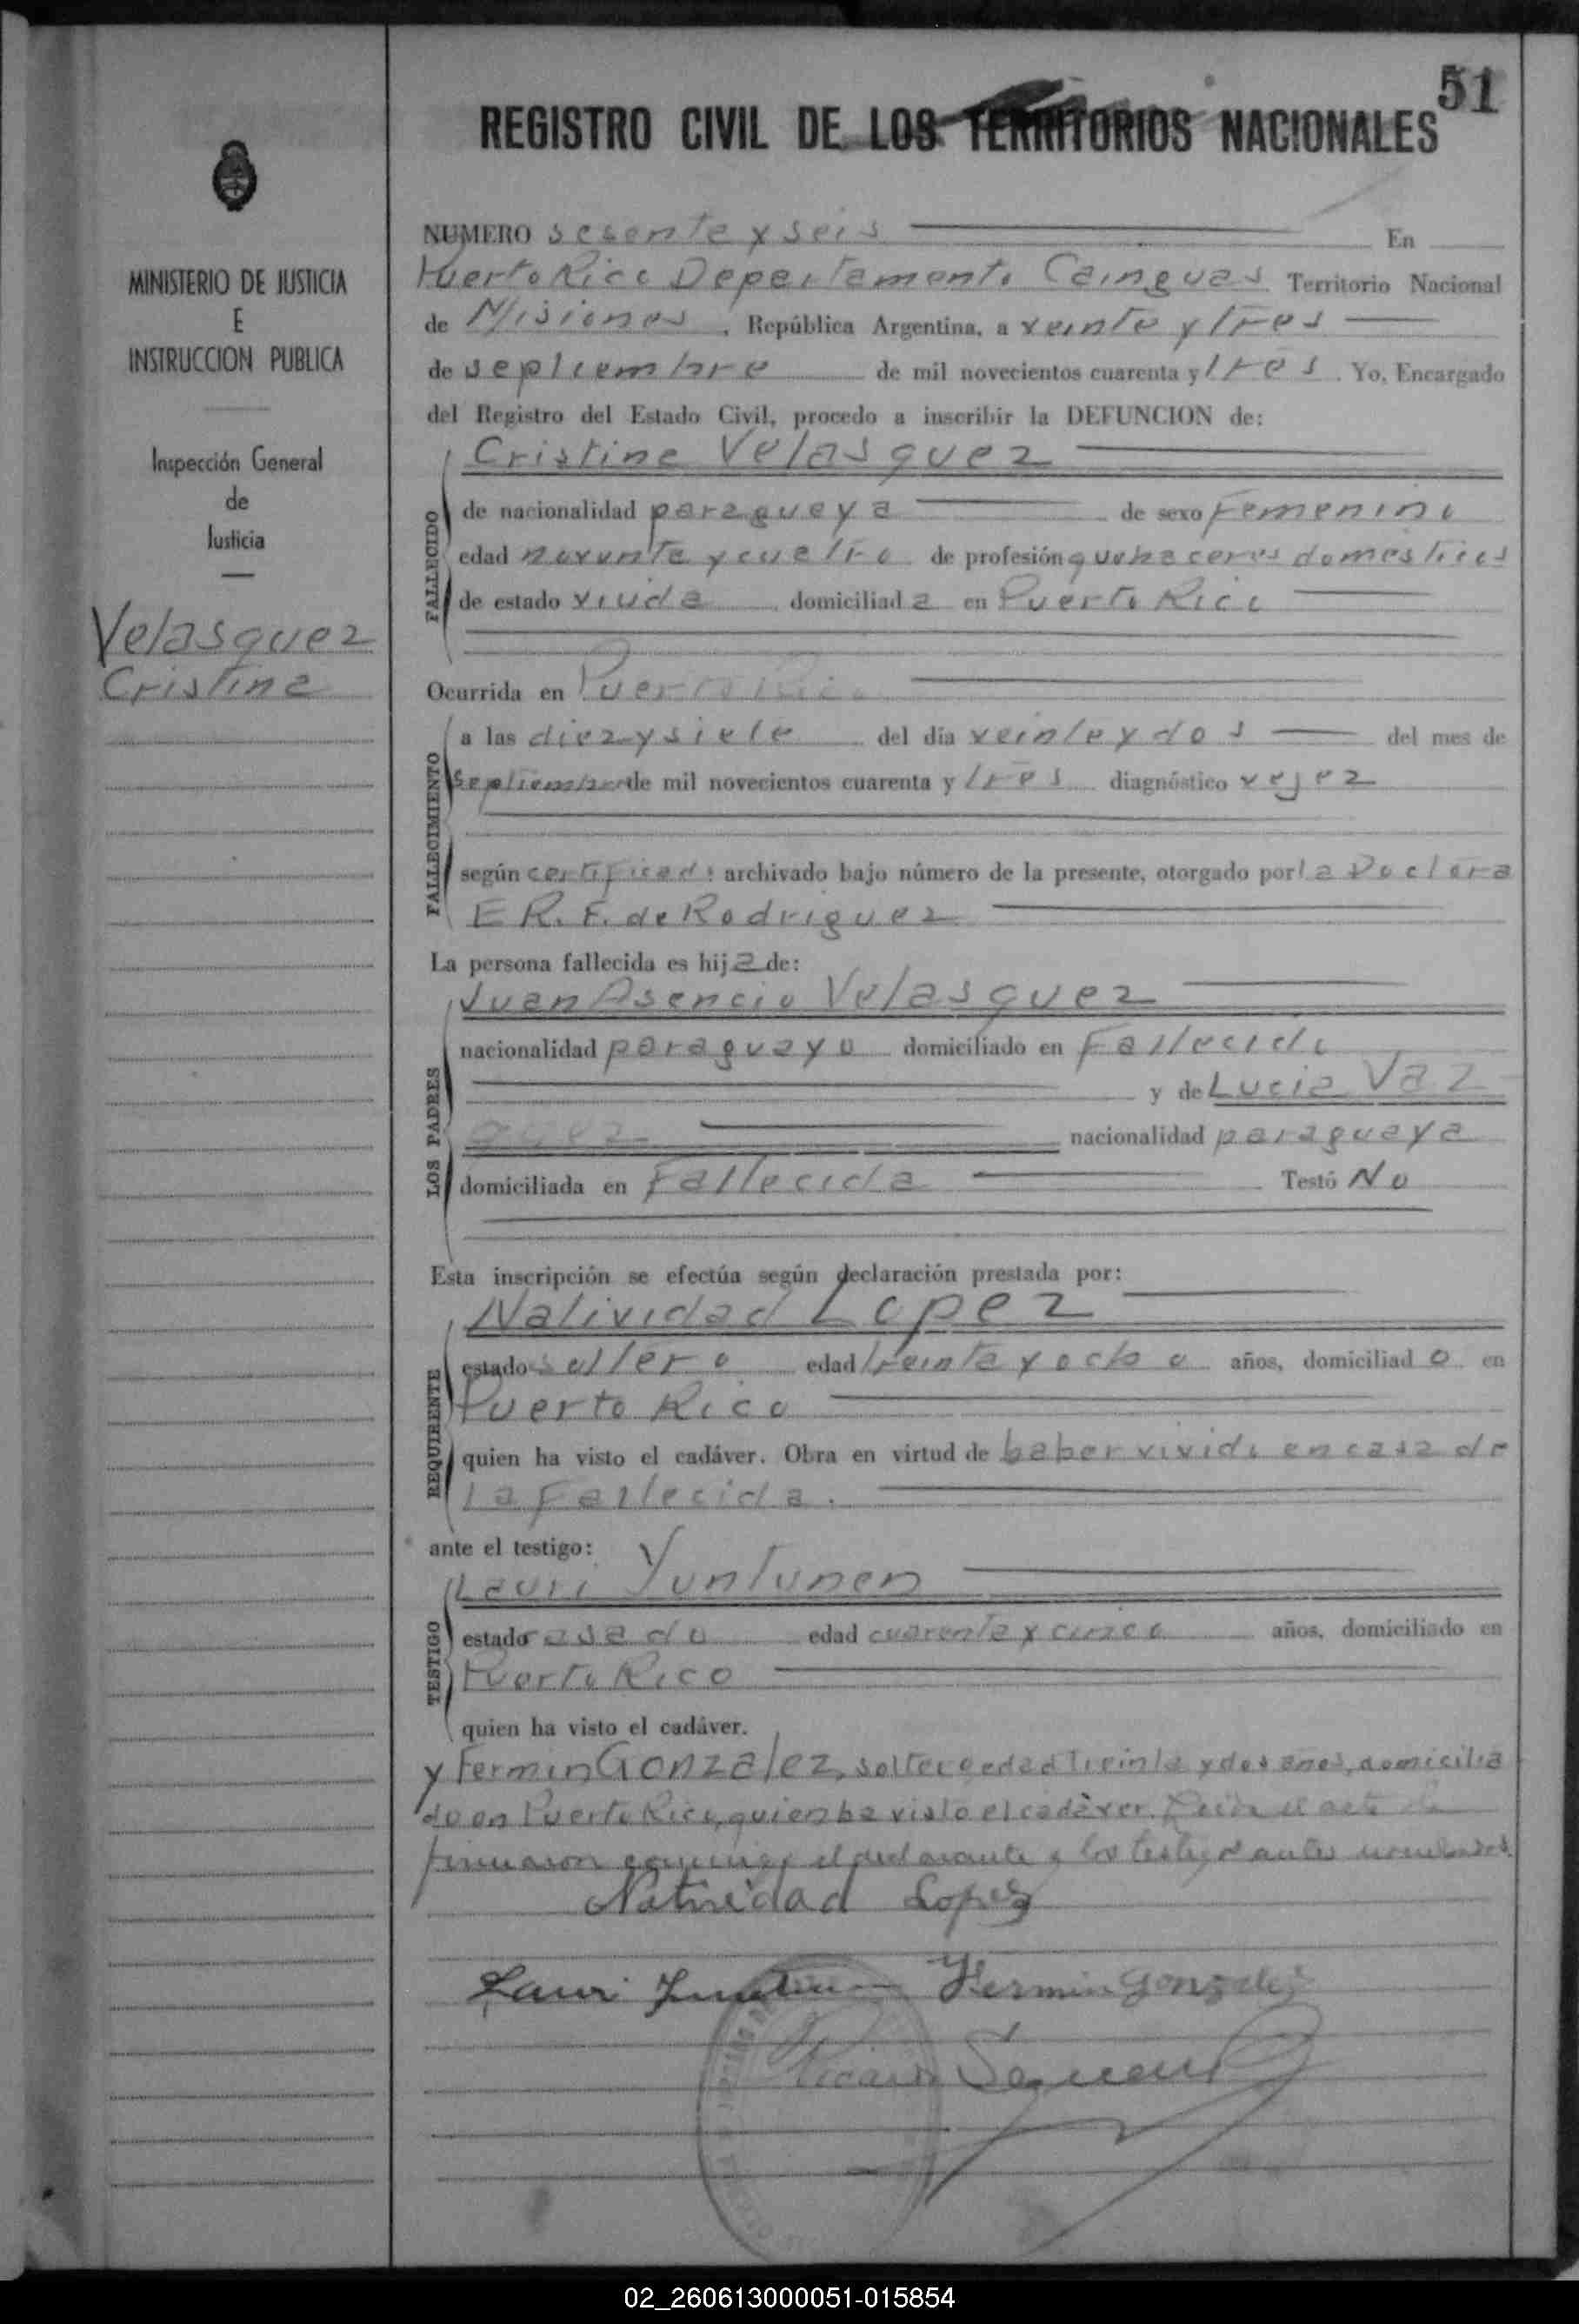 51
REGISTRO CIVIL DE LOS TERRITORIOS NACIONALES
MINISTERIO DE JUSTICIA
E
INSTRUCCION PUBLICA
Inspección General
de
Justicia
Velasquez
Cristina
NUMERO sesenta y seis En
Puerto Rico Departamento Cainguas Territorio Nacional
de Misiones, República Argentina, a veinte y tres
de septiembre de mil novecientos cuarenta y tres. Yo, Encargado
del Registro del Estado Civil, procedo a inscribir la DEFUNCION de:
Cristina Velasquez
FALLECIDO
de nacionalidad paraguaya de sexo Femenino
edad noventa y cuatro de profesión quehaceres domesticos
de estado viuda domiciliada en Puerto Rico
Ocurrida en Puerto Rico
FALLECIMIENTO
a las diez y siete del día veinte y dos del mes de
septiembre de mil novecientos cuarenta y tres diagnóstico vejez
según certificado archivado bajo número de la presente, otorgado por la Doctora
E R. F. de Rodriguez
La persona fallecida es hija de:
LOS PADRES
Juan Asencio Velasquez
nacionalidad paraguayo domiciliado en Fallecido
y de Lucia Vaz
quez nacionalidad paraguaya
domiciliada en Fallecida Testó No
Esta inscripción se efectúa según declaración prestada por:
REQUIRENTE
Natividad Lopez
estado soltero edad treinta y ocho años, domiciliado en
Puerto Rico
quien ha visto el cadáver. Obra en virtud de haber vivido en casa de
la Fallecida.
ante el testigo:
TESTIGO
Lauri Yuntunen
estado casado edad cuarenta y cinco años, domiciliado en
Puerto Rico
quien ha visto el cadáver.
y Fermin Gonzalez, soltero edad treinta y dos años, domicilia
do en Puerto Rico, quien ha visto el cadáver. Leida el acta la
firmaron conmigo el declarante y los testigos antes nombrados.
Natividad Lopez
Lauri Fermin Gonzalez
02_260613000051-015854